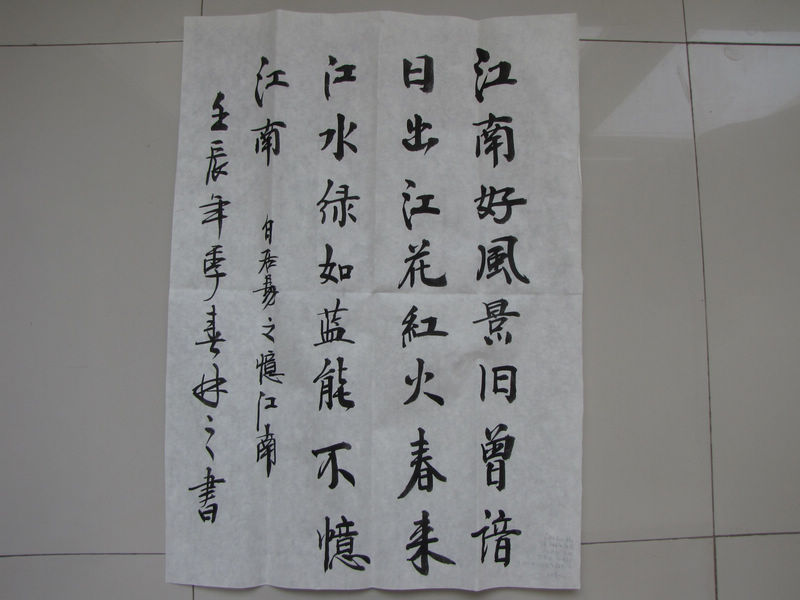 江南好風景旧曾谙
日出江花紅火春来
江水绿如蓝能不憶
江南 白居易之憶江南
壬辰年季春之書